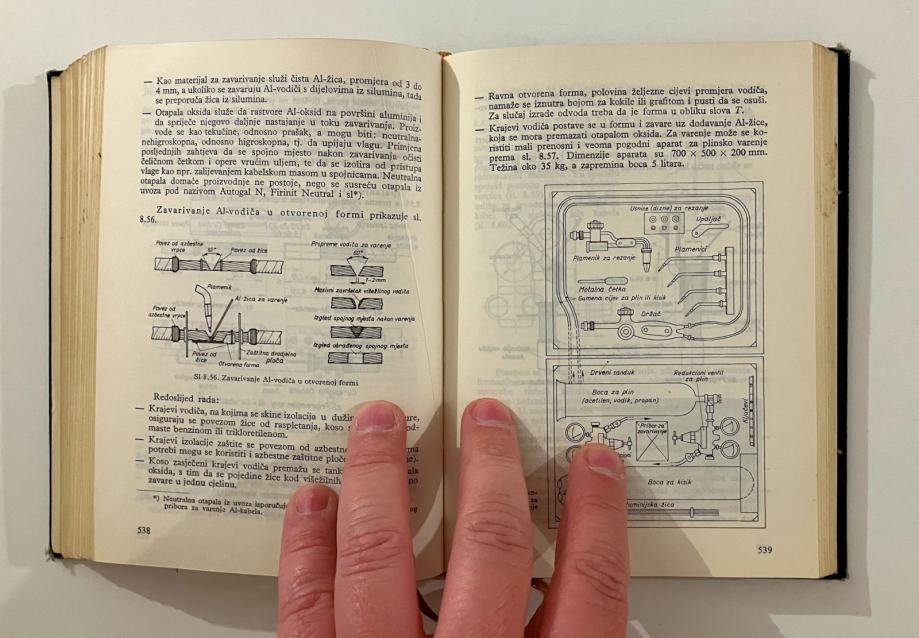 — Kao materijal za zavarivanje služi čista Al-žica, promjera od 3 do
4 mm, a ukoliko se zavaruju Al-vodiči s dijelovima iz silumina, tada
se preporuča žica iz silumina.
— Otapala oksida služe da rastvore Al-oksid na površini aluminija i
da spriječe njegovo daljnje nastajanje u toku zavarivanja. Proiz-
vode se kao tekućine, odnosno prašak, a mogu biti: neutralna-
nehigroskopna, odnosno higroskopna, tj. da upijaju vlagu. Primjena
posljednjih zahtjeva da se spojno mjesto nakon zavarivanja očisti
čeličnom četkom i opere vrućim uljem, te da se izolira od pristupa
vlage kao npr. zalijevanjem kabelskom masom u spojnicama. Neutralna
otapala domaće proizvodnje ne postoje, nego se susreću otapala iz
uvoza pod nazivom Autogal N, Firinit Neutral i sl*).
Zavarivanje Al-vodiča u otvorenoj formi prikazuje sl.
8.56.
Povez od azbestne
vrpce
60°
Povez od žice
Plamenik
Al-žica za varenje
Povez od
azbestne vrpce
Povez od
žice
Otvorena forma
Zaštitna dvodjelna
ploča
Priprema vodiča za varenje
60°
1-2mm
Masivni završetak višežilnog vodiča
Izgled spojnog mjesta nakon varenja
Izgled obrađenog spojnog mjesta
Sl 8.56. Zavarivanje Al-vodiča u otvorenoj formi
Redoslijed rada:
— Krajevi vodiča, na kojima se skine izolacija u dužin
osiguraju se povezom žice od raspletanja, koso
maste benzinom ili trikloretilenom.
— Krajevi izolacije zaštite se povezom od azbestne
potrebi mogu se koristiti i azbestne zaštitne ploče
— Koso zasječeni krajevi vodiča premažu se tank
oksida, s tim da se pojedine žice kod višežilnih
zavare u jednu cjelinu.
*) Neutralna otapala iz uvoza isporučuj
pribora za varenje Al-kabela.
538
— Ravna otvorena forma, polovina željezne cijevi promjera vodiča,
namaže se iznutra bojom za kokile ili grafitom i pusti da se osuši.
Za slučaj izrade odvoda treba da je forma u obliku slova T.
— Krajevi vodiča postave se u formu i zavare uz dodavanje Al-žice,
koja se mora premazati otapalom oksida. Za varenje može se ko-
ristiti mali prenosni i veoma pogodni aparat za plinsko varenje
prema sl. 8.57. Dimenzije aparata su 700 × 500 × 200 mm.
Težina oko 35 kg, a zapremina boca 5 litara.
Usnice (dizne) za rezanje
Upaljač
Plamenik za rezanje
Plamenici
Metalna četka
Gumena cijev za plin ili kisik
Držač
Drveni sanduk
Redukcioni ventil
za plin
Boca za plin
(acetilen, vodik, propan)
Ključevi
Pribor za
zavarivanje
Boca za kisik
uminijska žica
539